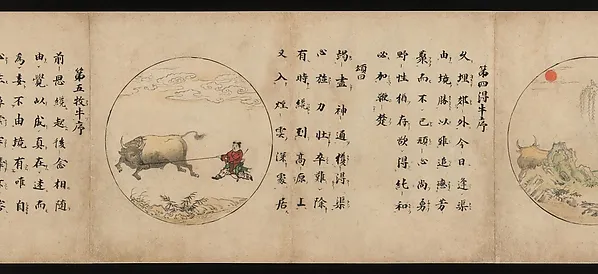 第四得牛序
久埋郊外今日逢渠
由境勝以難追戀芳
叢而不已頑心尚勇
野性猶存欲得純和
必加鞭楚
頌曰
竭盡神通獲得渠
心強力壯卒難除
有時纔到高原上
又入煙雲深處居
第五牧牛序
前思纔起後念相随
由覺以成真在迷而
為妄不由境有唯自